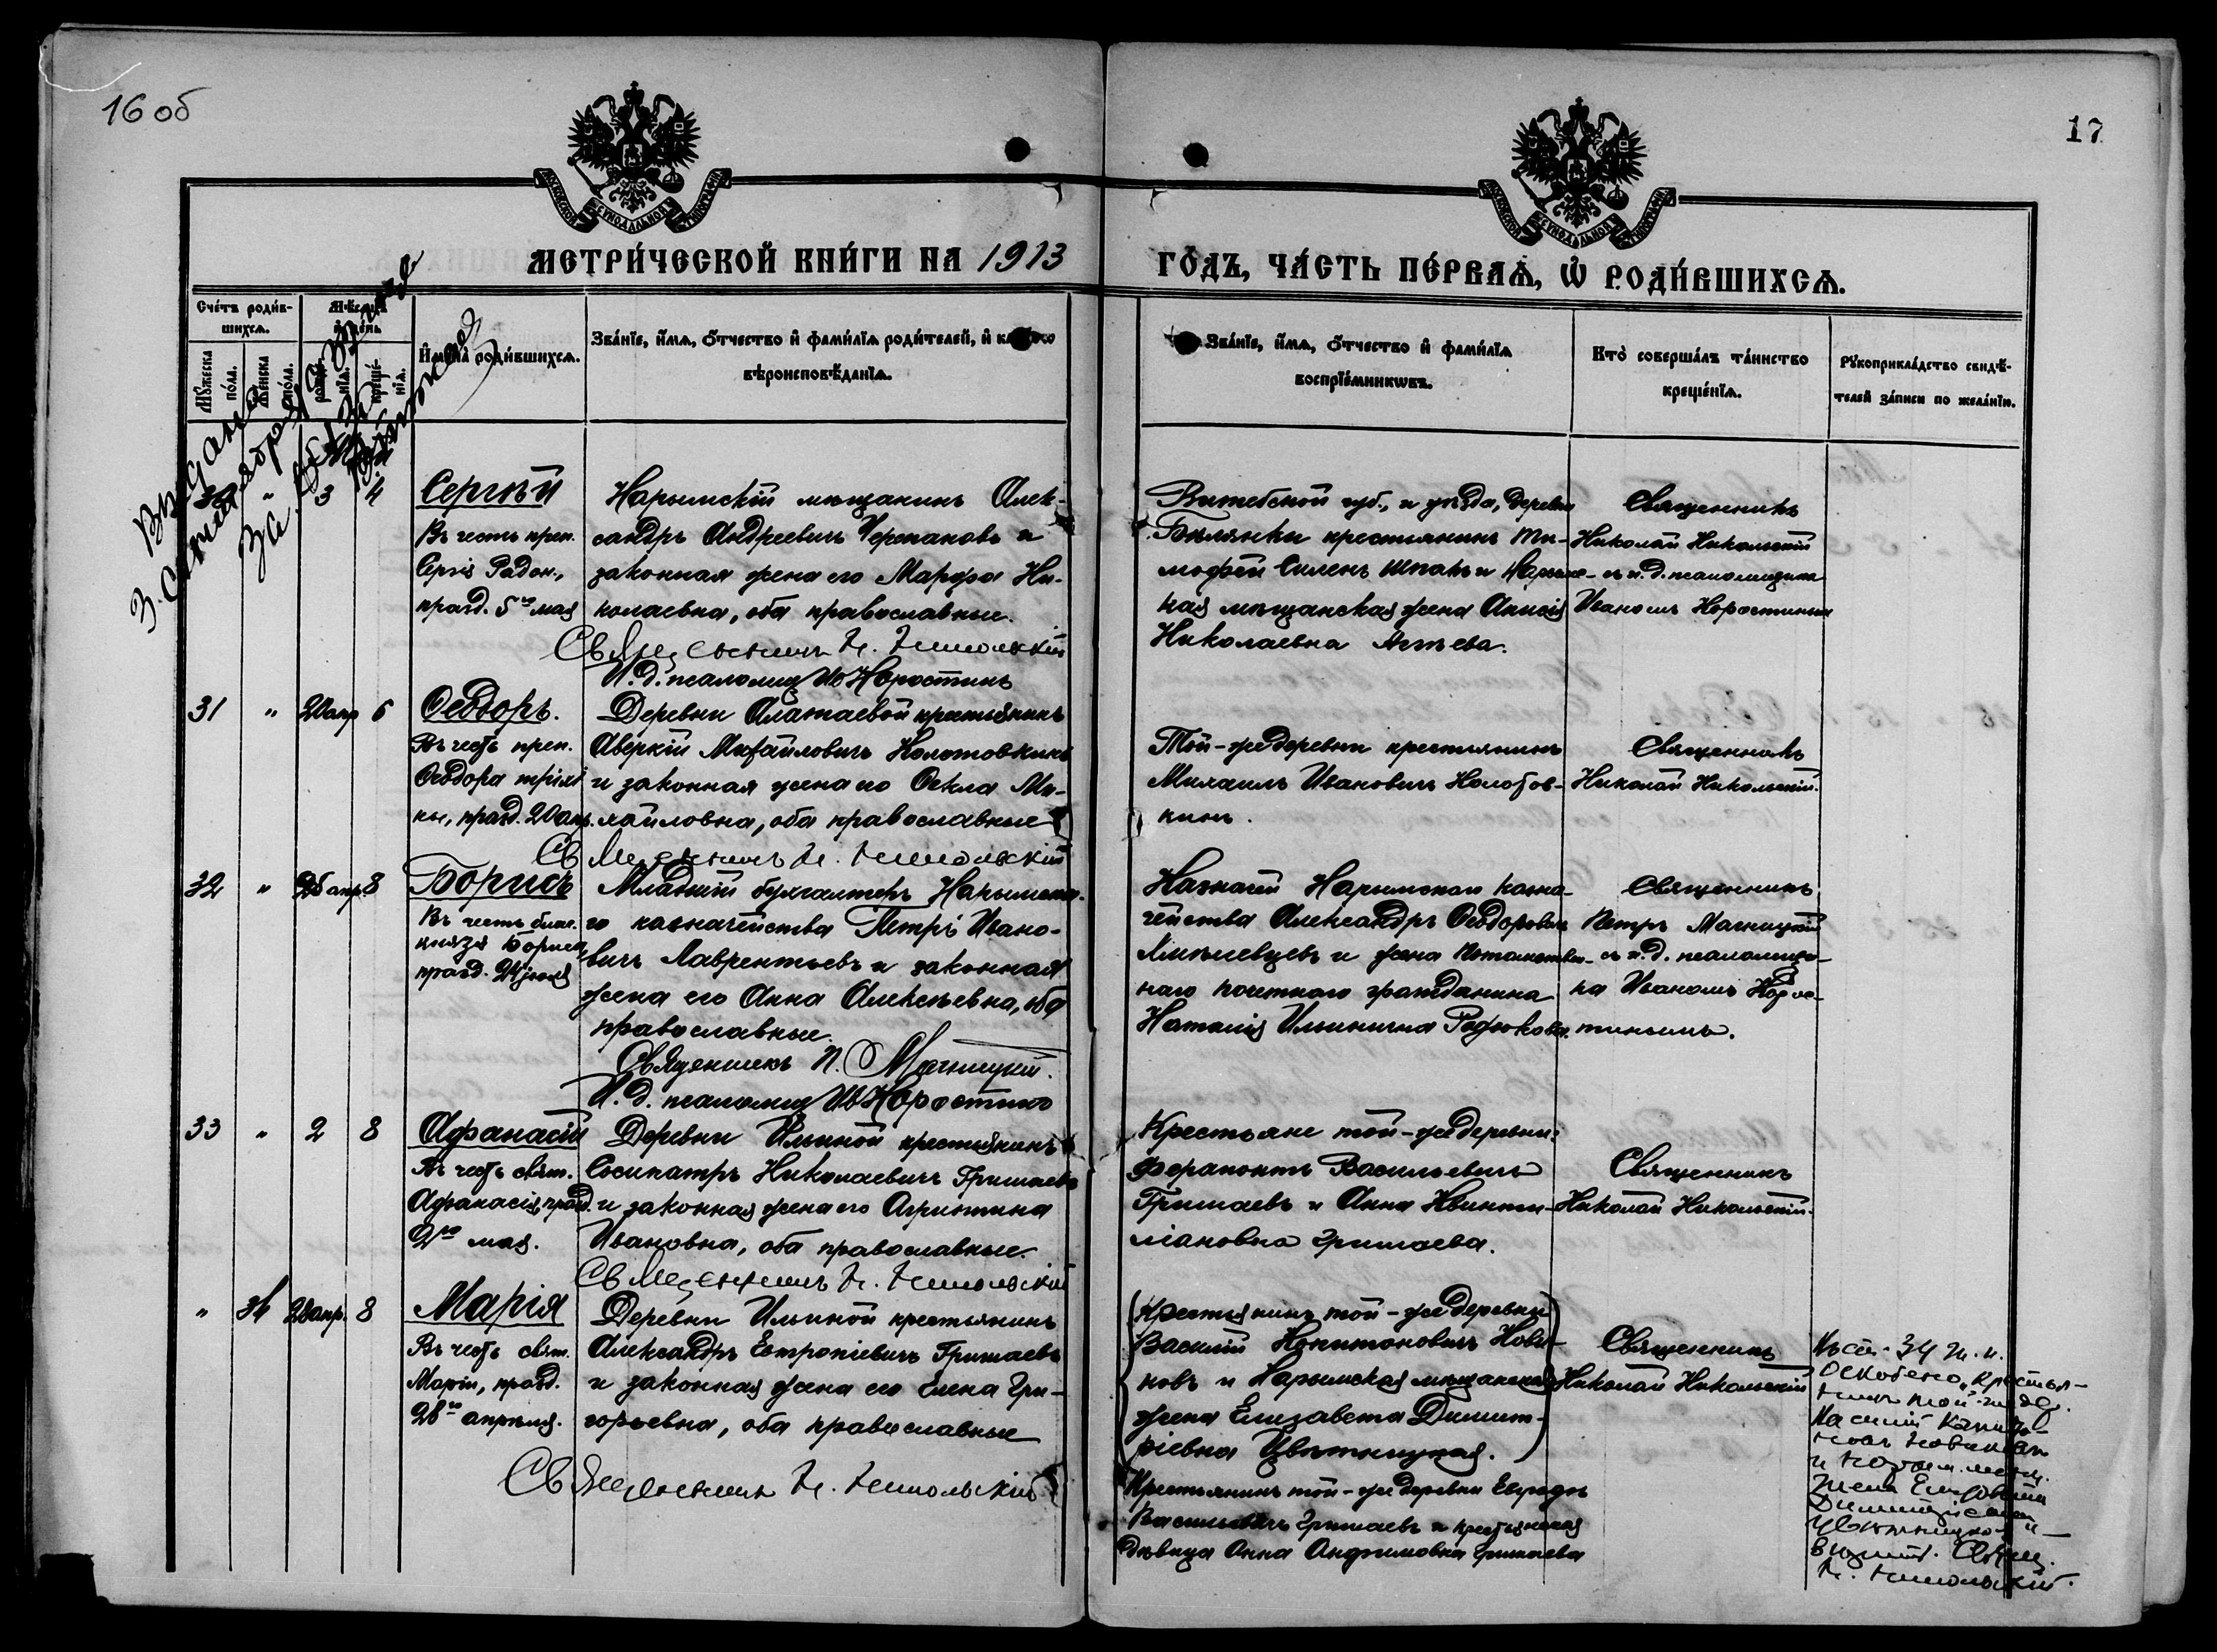 16 об
17
МОСКОВСКОЙ СѴНОДАЛЬНОЙ ТИПОГРАФІИ
МОСКОВСКОЙ СѴНОДАЛЬНОЙ ТИПОГРАФІИ
МЕТРИ́ЧЕСКОЙ КНИ́ГИ НА 1913
ГО́ДЪ, ЧА́СТЬ ПЕ́РВАѦ, Ѿ РОДИ́ВШИХСѦ.
Сче́тъ роди́в-
шихсѧ.
Мѣсѧцъ
и де́нь
Мꙋ́жеска
по́ла.
Же́нска
по́ла.
рожде́-
нїѧ.
креще́-
нїѧ.
И҆мена̀ роди́вшихсѧ.
Зва́нїе, и҆́мѧ, о҆́тчество и҆ фами́лїѧ роди́телей, и҆ како́го
вѣроисповѣ́данїѧ.
Зва́нїе, и҆́мѧ, о҆́тчество и҆ фами́лїѧ
воспрїе́мникѡвъ.
Кто̀ соверша́лъ та́инство
креще́нїѧ.
Рꙋкоприкла́дство свидѣ́-
телей за́писи по жела́нїю.
30 " 3 4
Сергѣй
Въ честь преп.
Сергія Радон.,
празд. 5го мая
Нарымскій мѣщанинъ Алек-
сандръ Андреевичъ Черепановъ и
законная жена его Марфа Ни-
колаевна, оба православные.
Священникъ Н. Никольскій
И. д. псаломщ. Ив Хоростинъ
Витебской губ., и уѣзда, деревни
Бѣлянки крестьянинъ Ти-
мофей Шпакъ и Нарымс-
кая мѣщанская жена Анисія
Николаевна
Священникъ
Николай Никольскій
съ и. д. псаломщика
Иваномъ Хоростинымъ
31 " 20 апр 6
Ѳеодоръ.
Въ честь преп.
Ѳеодора трихи-
ны, празд. 20 апр.
Деревни Алатаевой крестьянинъ
Аверкій Михайловичъ Колотовкинъ
и законная жена его Ѳекла Ми-
хайловна, оба православные
Священникъ Н. Никольскій
Той-же деревни крестьянинъ
Михаилъ Ивановичъ Колотов-
кинъ.
Священникъ
Николай Никольскій.
32 " 25 апр. 8
Борисъ
Въ честь блаж.
князя Бориса,
празд. 24 іюля
Младшій бухгалтеръ Нарымска-
го казначейства Петръ Ивано-
вичъ Лаврентьевъ и законная
жена его Анна Алексѣевна, оба
православные.
Священникъ П. Магницкій.
И. д. псаломщ Ив Хоростинъ
Казначей Нарымскаго казна-
чейства Александръ Ѳеодоровичъ
и жена Потомствен-
наго почетнаго гражданина
Наталія Ильинична Родюкова.
Священникъ
Петръ Магницкій
съ и. д. псаломщи-
ка Иваномъ Хорос-
тинымъ.
33 " 2 8
Афанасій
Въ честь свят.
Афанасія, празд.
2го мая.
Деревни Ильиной крестьянинъ
Сосипатръ Николаевичъ Гришаевъ
и законная жена его Агриппина
Ивановна, оба православные.
Священникъ Н. Никольскій
Крестьяне той-же деревни:
Ферапонтъ Васильевичъ
Гришаевъ и Анна Квинти-
ліановна Гришаева.
Священникъ
Николай Никольскій.
" 34 28 апр. 8
Марія
Въ честь свят.
Маріи, празд.
28го апрѣля.
Деревни Ильиной крестьянинъ
Александръ Евтропіевичъ Гришаевъ
и законная жена его Елена Гри-
горьевна, оба православные
Священникъ Н. Никольскій
(Крестьянинъ той-же деревни
Василій Капитоновичъ Нови-
ковъ и Нарымская мѣщанская
жена Елизавета Димит-
ріевна Цвѣтницкая.)
Крестьянинъ той-же деревни
Васильевичъ Гришаевъ и крестьянская
дѣвица Анна Гришаева
Священникъ
Николай Никольскій
34
крестья-
нинъ той-же дер.
Василій Капито-
новъ Новиковъ
и Нарым. мѣщ.
жена Елизавета
Димитріевна
Свящ.
Н. Никольскій.